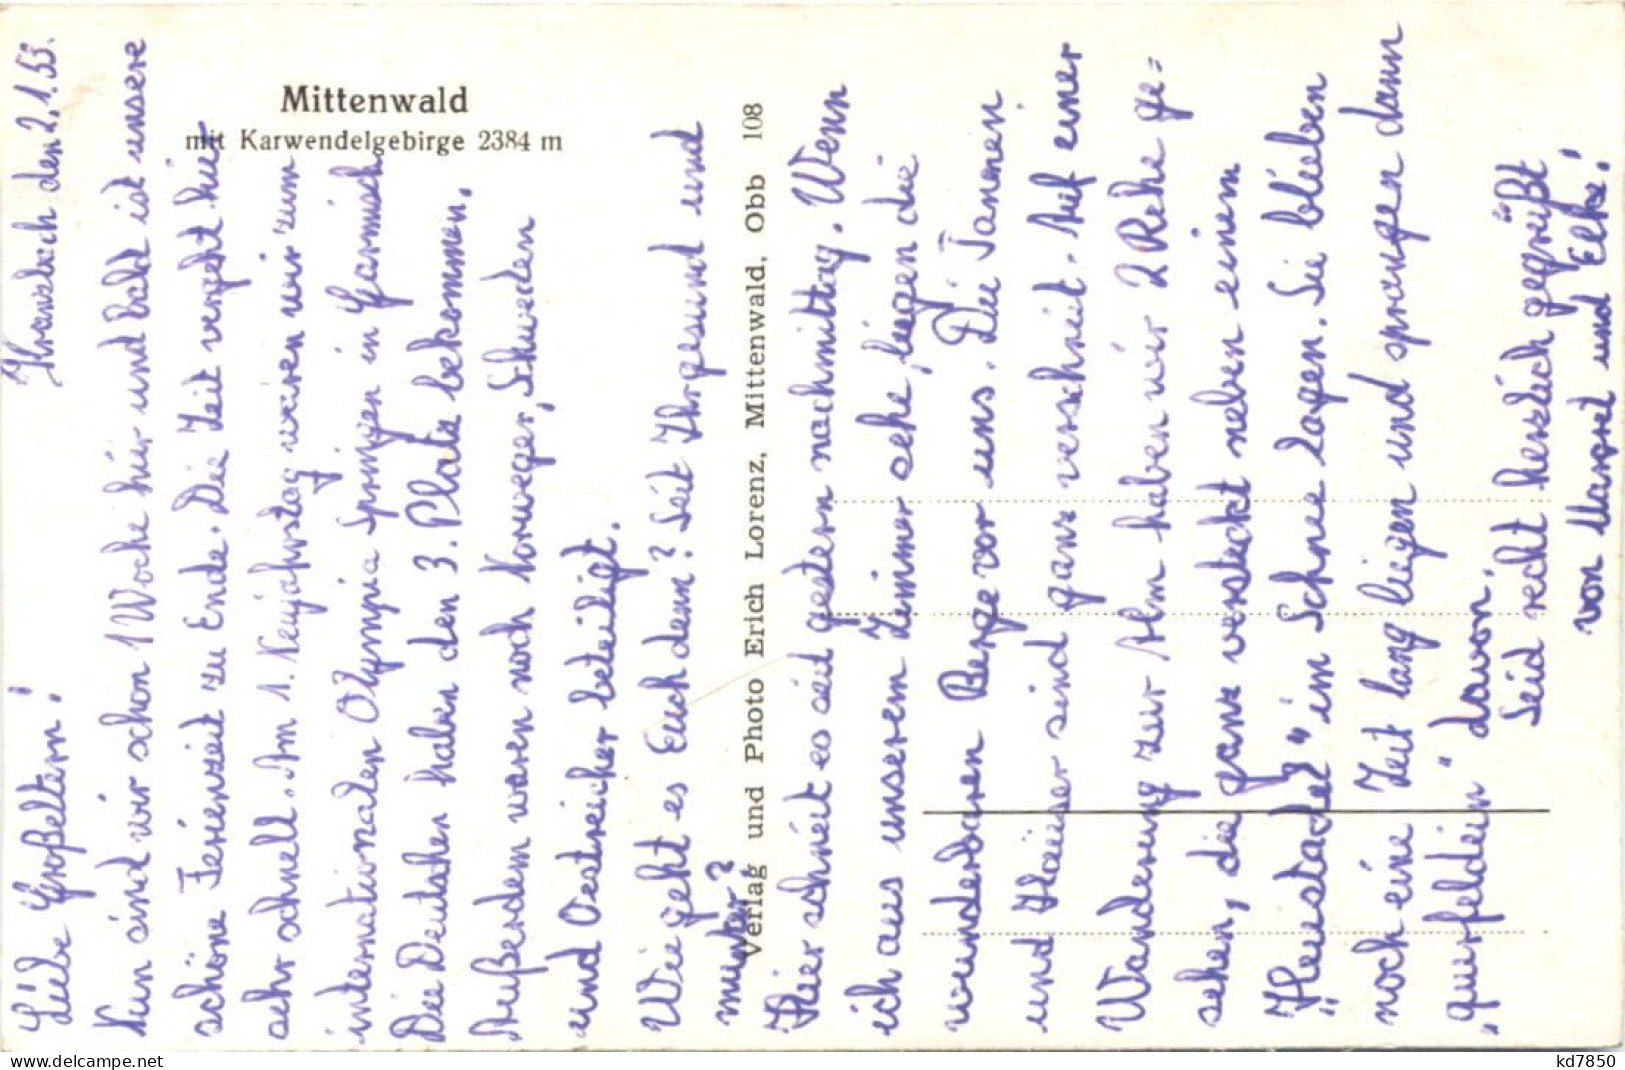 Mittenwald
mit Karwendelgebirge 2384 m
Verlag und Photo Erich Lorenz, Mittenwald, Obb 108
den 2.1.53.
Liebe Großeltern!
Nun sind wir schon 1 Woche hier und bald ist unsere
schöne Ferienzeit zu Ende. Die Zeit vergeht hier
sehr schnell. Am 1. Neujahrstag waren wir zum
internationalen Olympia Springen in Garmisch.
Die Deutschen haben den 3. Platz bekommen.
Außerdem waren noch Norweger, Schweden
und Oestreicher beteiligt.
Wie geht es Euch denn? Seit Ihr gesund und
munter?
Hier schneit es seit gestern nachmittag. Wenn
ich aus unserem Zimmer sehe, liegen die
wunderbaren Berge vor uns. Die Tannen
und Häuser sind ganz verschneit. Auf einer
Wanderung zur Alm haben wir 2 Rehe ge=
sehen, die ganz versteckt neben einem
„Heustadel" im Schnee lagen. Sie blieben
noch eine Zeit lang liegen und sprangen dann
„querfeldein" davon.
Seid recht herzlich gegrüßt
von Margret und Elke!
https://www.delcampe.net
kd7850